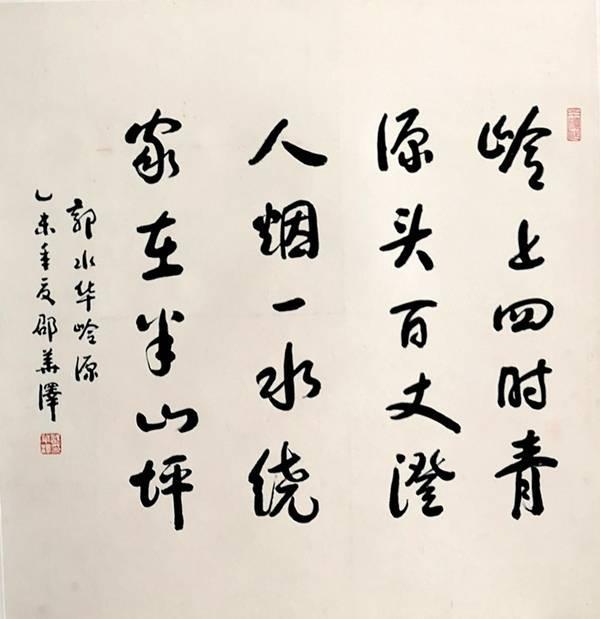 岭上四时青
源头百丈澄
人烟一水绕
家在半山坪
郭水华岭源
乙未季夏邵华泽